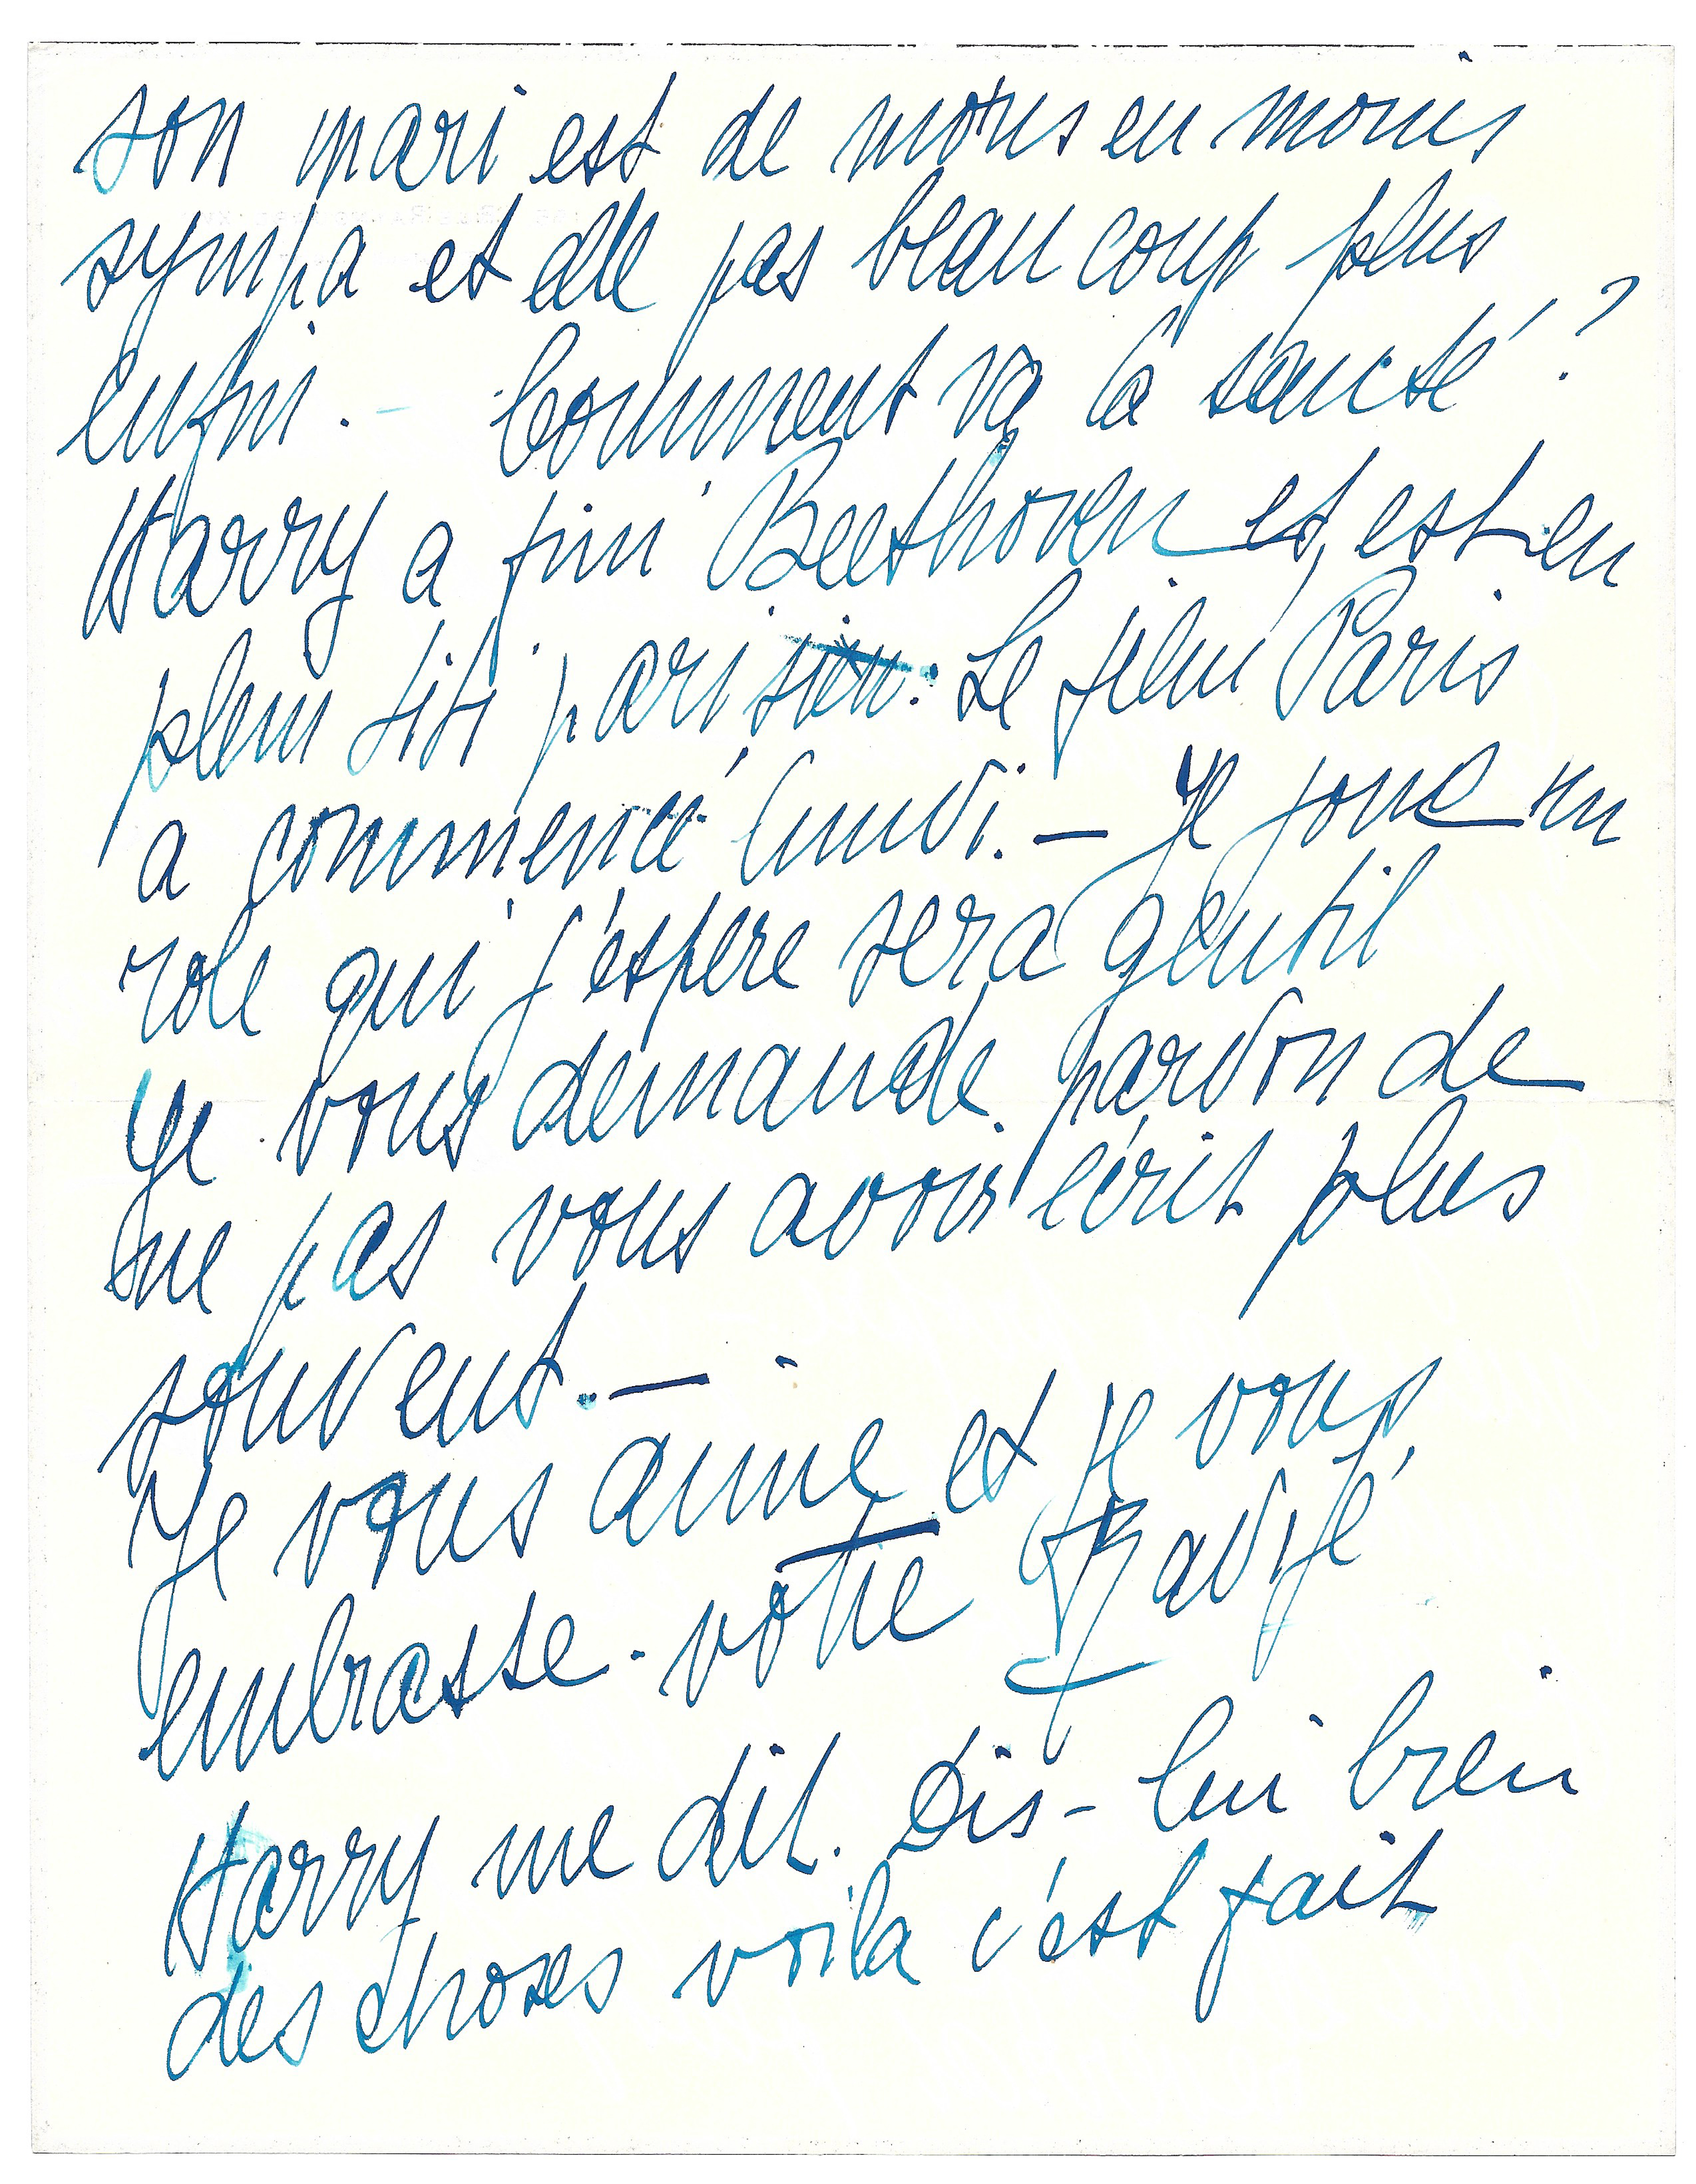 son mari est de moins en moins
sympa et elle pas beaucoup plus
enfin. - Comment va la santé ?
Harry a fini Beethoven et, est en
plein titi parisien. Le film Paris
a commencé lundi. — Je joue un
role qui j'espere sera gentil
Je vous demande pardon de
ne pas vous avoir écrit plus
souvent. —
Je vous aime et je vous
embrasse. votre
Harry me dit. Dis-lui bien
des choses voila c'est fait